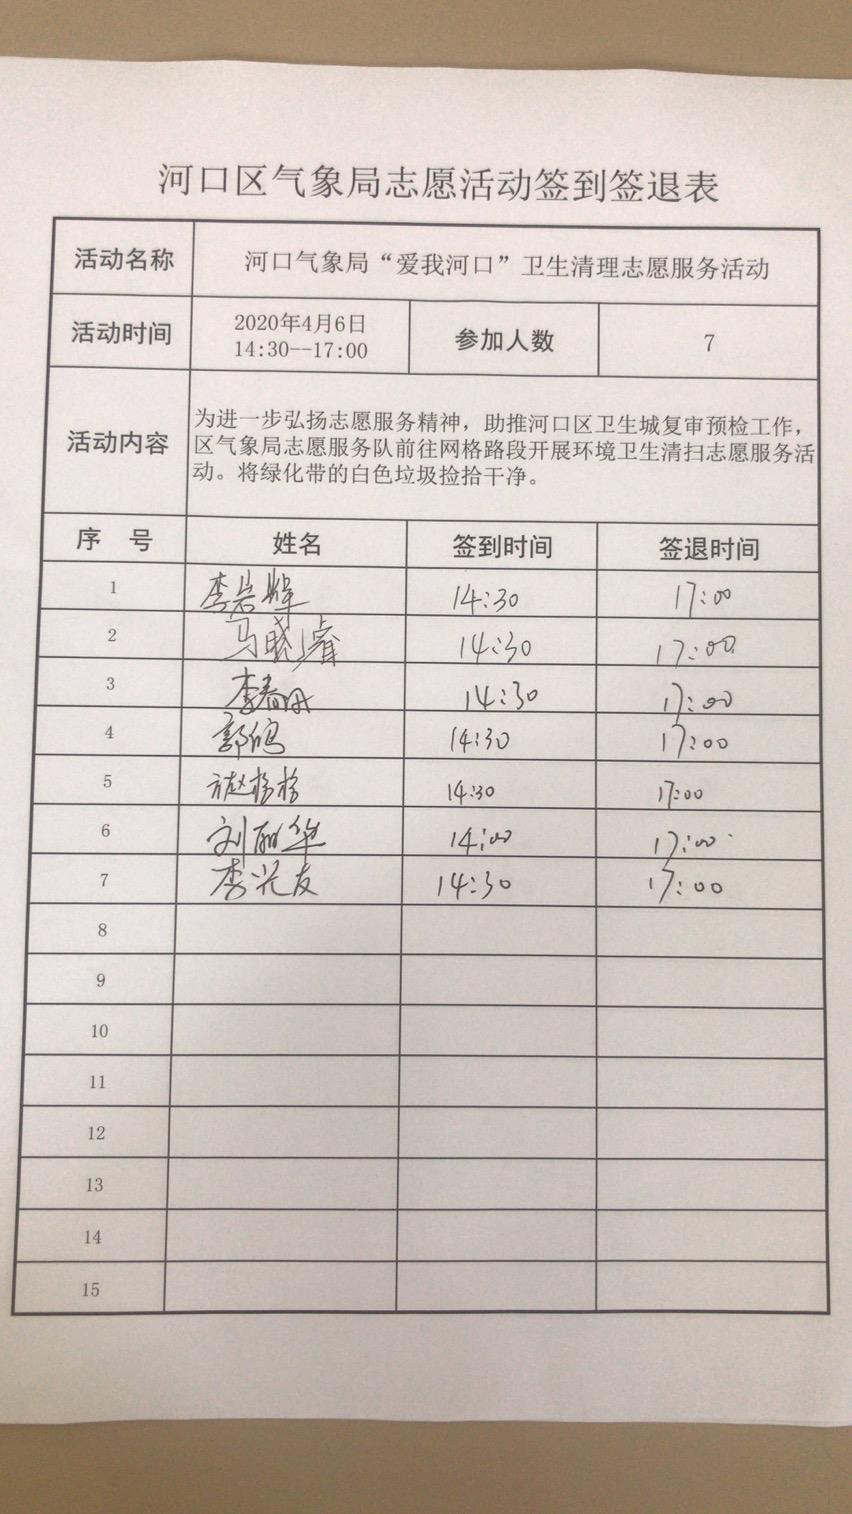 河口区气象局志愿活动签到签退表
活动名称 河口气象局“爱我河口”卫生清理志愿服务活动
活动时间 2020年4月6日 14:30--17:00 参加人数 7
活动内容 为进一步弘扬志愿服务精神，助推河口区卫生城复审预检工作，
区气象局志愿服务队前往网格路段开展环境卫生清扫志愿服务活
动。将绿化带的白色垃圾捡拾干净。
序 号 姓名 签到时间 签退时间
1 李岩辉 14:30 17:00
2 马晓睿 14:30 17:00
3 李春 14:30 17:00
4 郭鸽 14:30 17:00
5 赵杨杨 14:30 17:00
6 刘丽华 14:00 17:00
7 李兴友 14:30 17:00
8
9
10
11
12
13
14
15